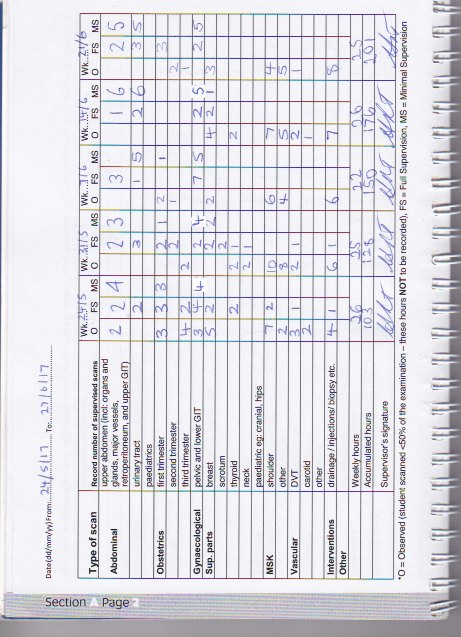 Date(dd/mm/yy)From: 24/5/17 To: 27/6/17
Type of scan Record number of supervised scans Wk 24/5 Wk 31/5 Wk 7/6 Wk 14/6 Wk 21/6
O FS MS O FS MS O FS MS O FS MS O FS MS
Abdominal upper abdomen (incl: organs and
glands, major vessels,
retroperitoneum, and upper GIT) 2 2 4 2 3 3 1 6 2 5
urinary tract 2 3 1 5 2 6 3 5
paediatrics
Obstetrics first trimester 3 3 3 2 1 2 1 3
second trimester 2 1 2
third trimester 4 2 2 1
Gynaecological pelvic and lower GIT 3 4 4 2 4 7 5 2 5 2 5
Sup. parts breast 5 2 2 2 2 4 2 1 3
scrotum 2
thyroid 2 2 1 2
neck 2 1
paediatric eg: cranial, hips
MSK shoulder 7 2 10 6 7 4
other 2 8 4 5 5
Vascular DVT 3 1 2 1 2 1
carotid 2 1
other
Interventions drainage / injections/ biopsy etc. 4 1 6 1 6 7 8
Other
Weekly hours 26 25 22 26 25
Accumulated hours 103 128 150 176 201
Supervisor's signature
*O = Observed (student scanned <50% of the examination – these hours NOT to be recorded), FS = Full Supervision, MS = Minimal Supervision
Section A Page 2